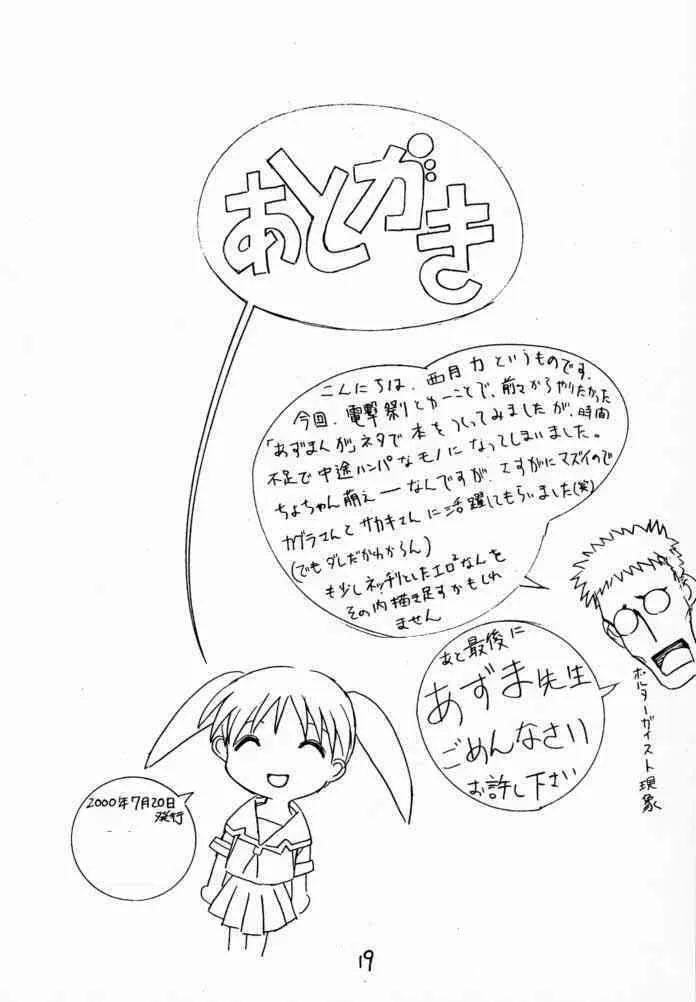 あとがき
こんにちは、西月力というものです。
今回、電撃祭りとかーことで、前々からやりたかった
「あずまんが」ネタで本をつくってみましたが、時間
不足で中途ハンパなモノになってしまいました。
ちよちゃん萌えーなんですが、さすがにマズイので
カグラさんとサカキさんに活躍してもらいました(笑)
(でもダレだかわからん)
も少しネッチリとしたエロ²なんを
その内描き足すかもしれ
ません
あと最後に
あずま先生
ごめんなさい
お許し下さい
ポルターガイスト現象
2000年7月20日
発行
19